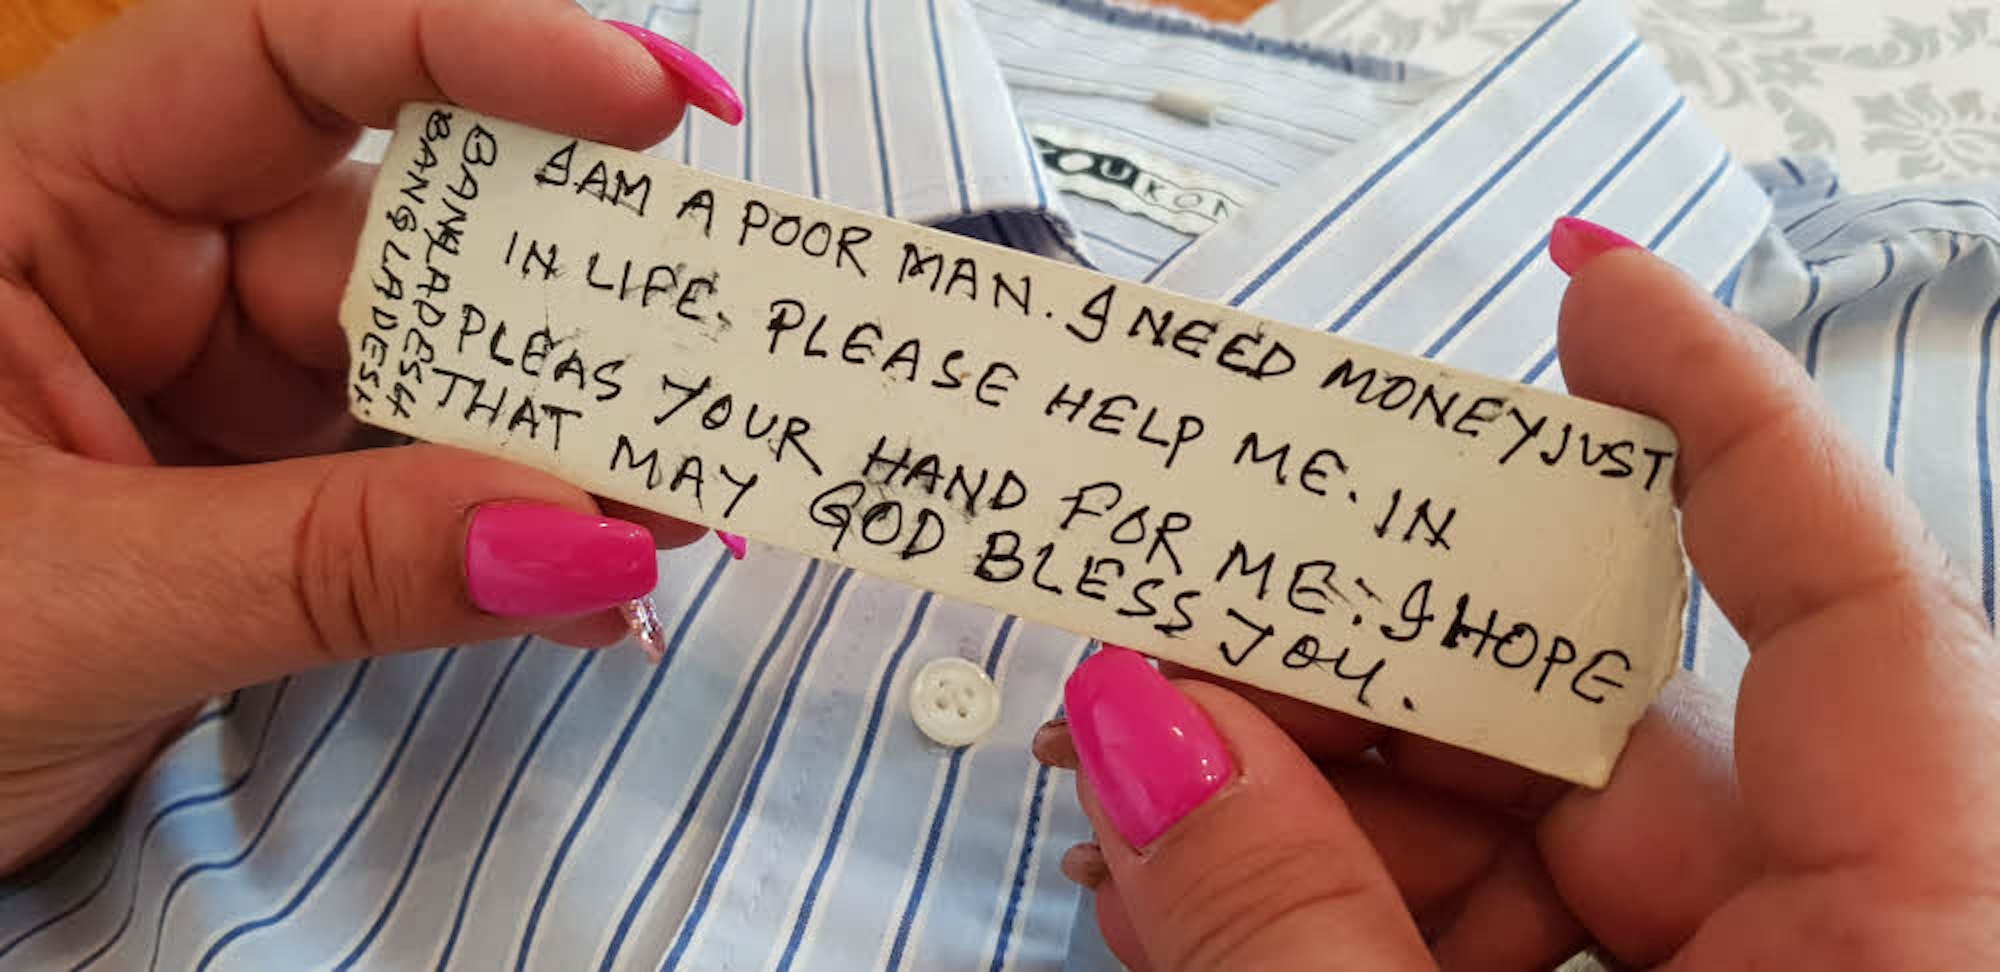 I AM A POOR MAN. I NEED MONEY JUST
IN LIFE. PLEASE HELP ME. IN
PLEAS YOUR HAND FOR ME. I HOPE
THAT MAY GOD BLESS YOU.
BANGLADESH
BANGLADESH.
YOUKON